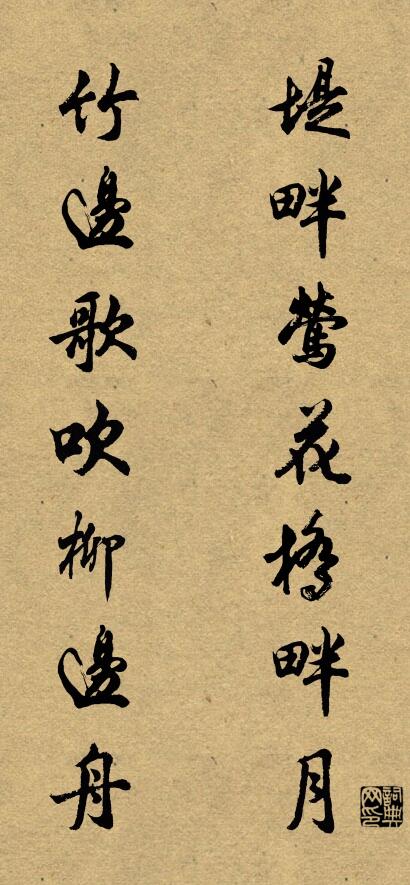 堤畔鶯花橋畔月
竹邊歌吹柳邊舟
詞典網印